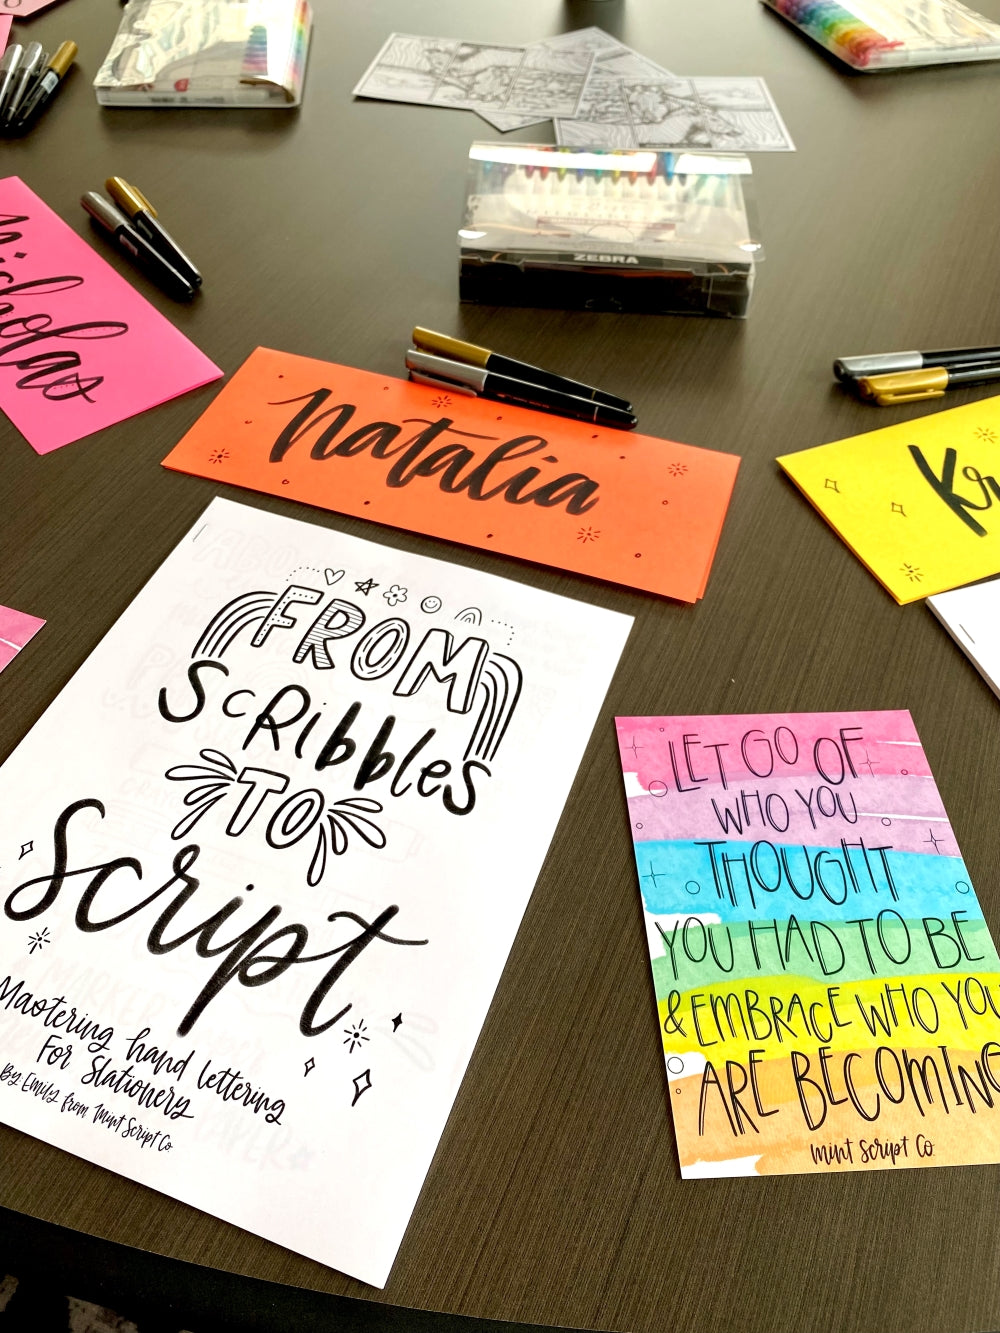 ZEBRA
Nicholas
Natalia
Kr
FROM
ScRibbles
TO
Script
Mastering hand lettering
For Stationery
By Emily from Mint Script Co.
LET GO OF
WHO YOU
THOUGHT
YOU HAD TO BE
& EMBRACE WHO YOU
ARE BECOMING
mint script Co.